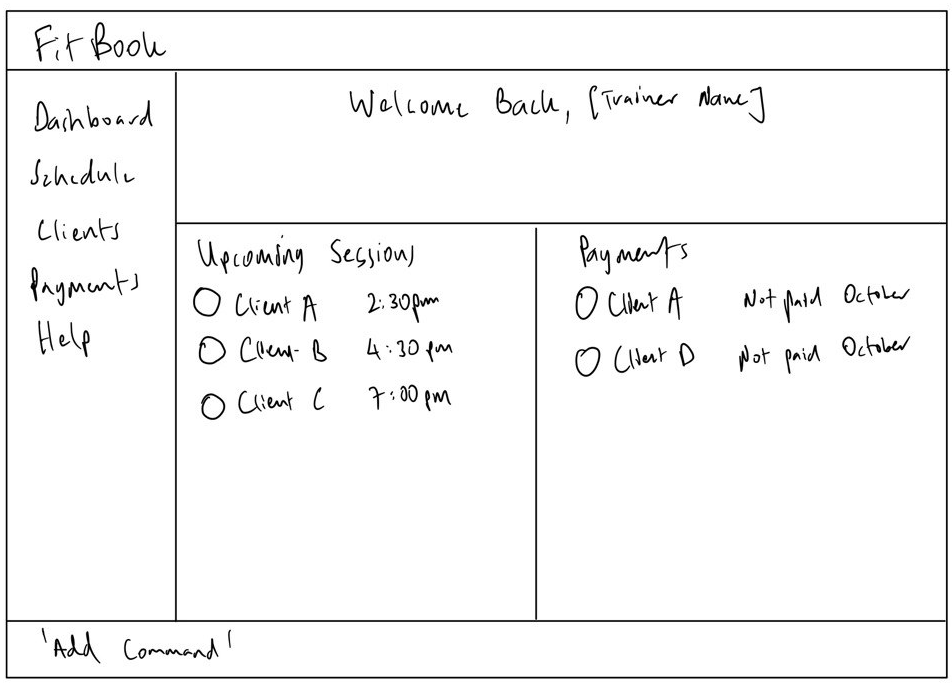 FitBook
Dashboard
Schedule
Clients
Payments
Help
Welcome Back, [Trainer Name]
Upcoming Sessions
Client A 2:30pm
Client B 4:30pm
Client C 7:00pm
Payments
Client A Not paid October
Client D Not paid October
'Add Command'